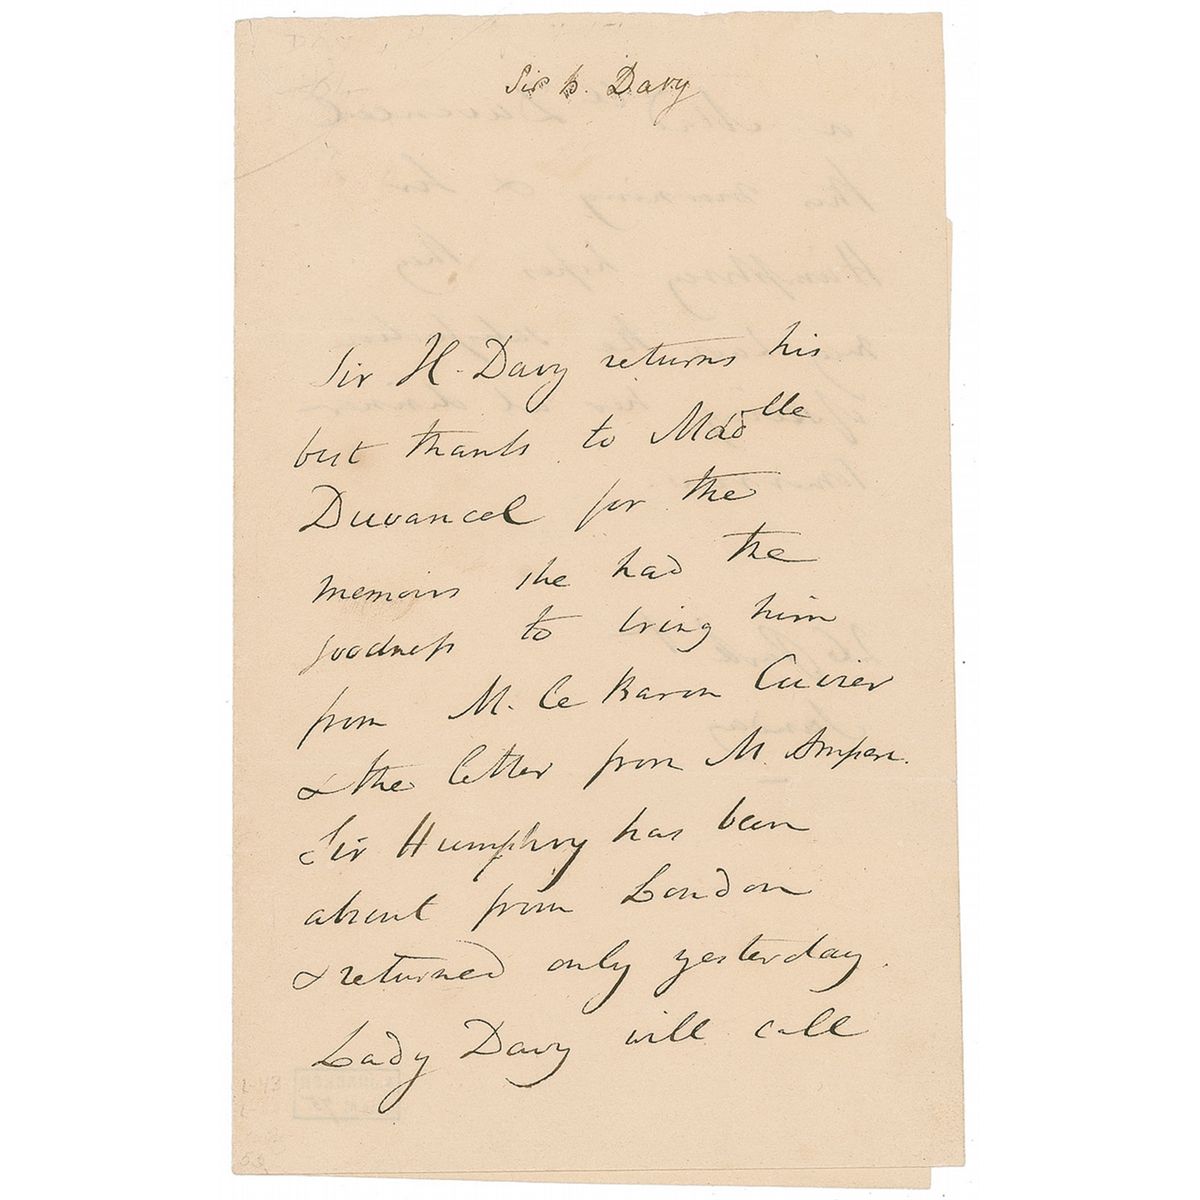 Sir H. Davy
Sir H. Davy returns his
best thanks to Madlle
Duvancel for the
memoirs she had the
goodness to bring him
from M. Le Baron Cuvier
& the letter from M. Ampere.
Sir Humphry has been
absent from London
& returned only yesterday.
Lady Davy will call